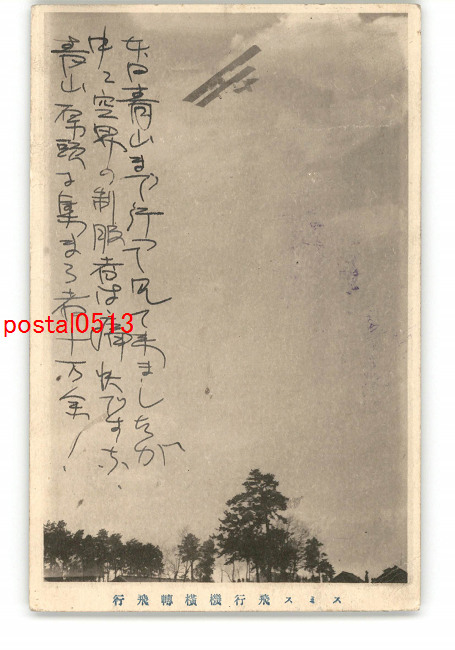 本日青山まで行つて見て来ましたが
中々空界の制服者は痛快ですな、
青山原頭に集まる者十万余!
postal0513
行飛轉橫機行飛スミス